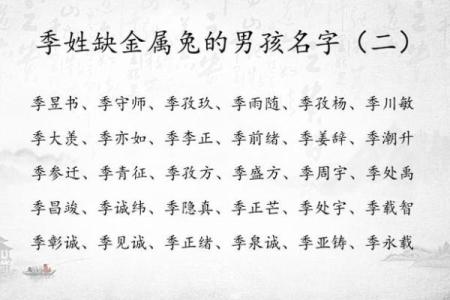 季姓缺金属兔的男孩名字（二）
季昱书、季守师、季孜玖、季雨随、季孜杨、季川敏
季大羡、季亦如、季李正、季前绪、季姜辞、季潮升
季参迁、季青征、季孜方、季盛方、季周宇、季处禹
季昌竣、季诚纬、季隐真、季正芒、季处宇、季载智
季彰诚、季见诚、季正绪、季泉诚、季亚铸、季永载